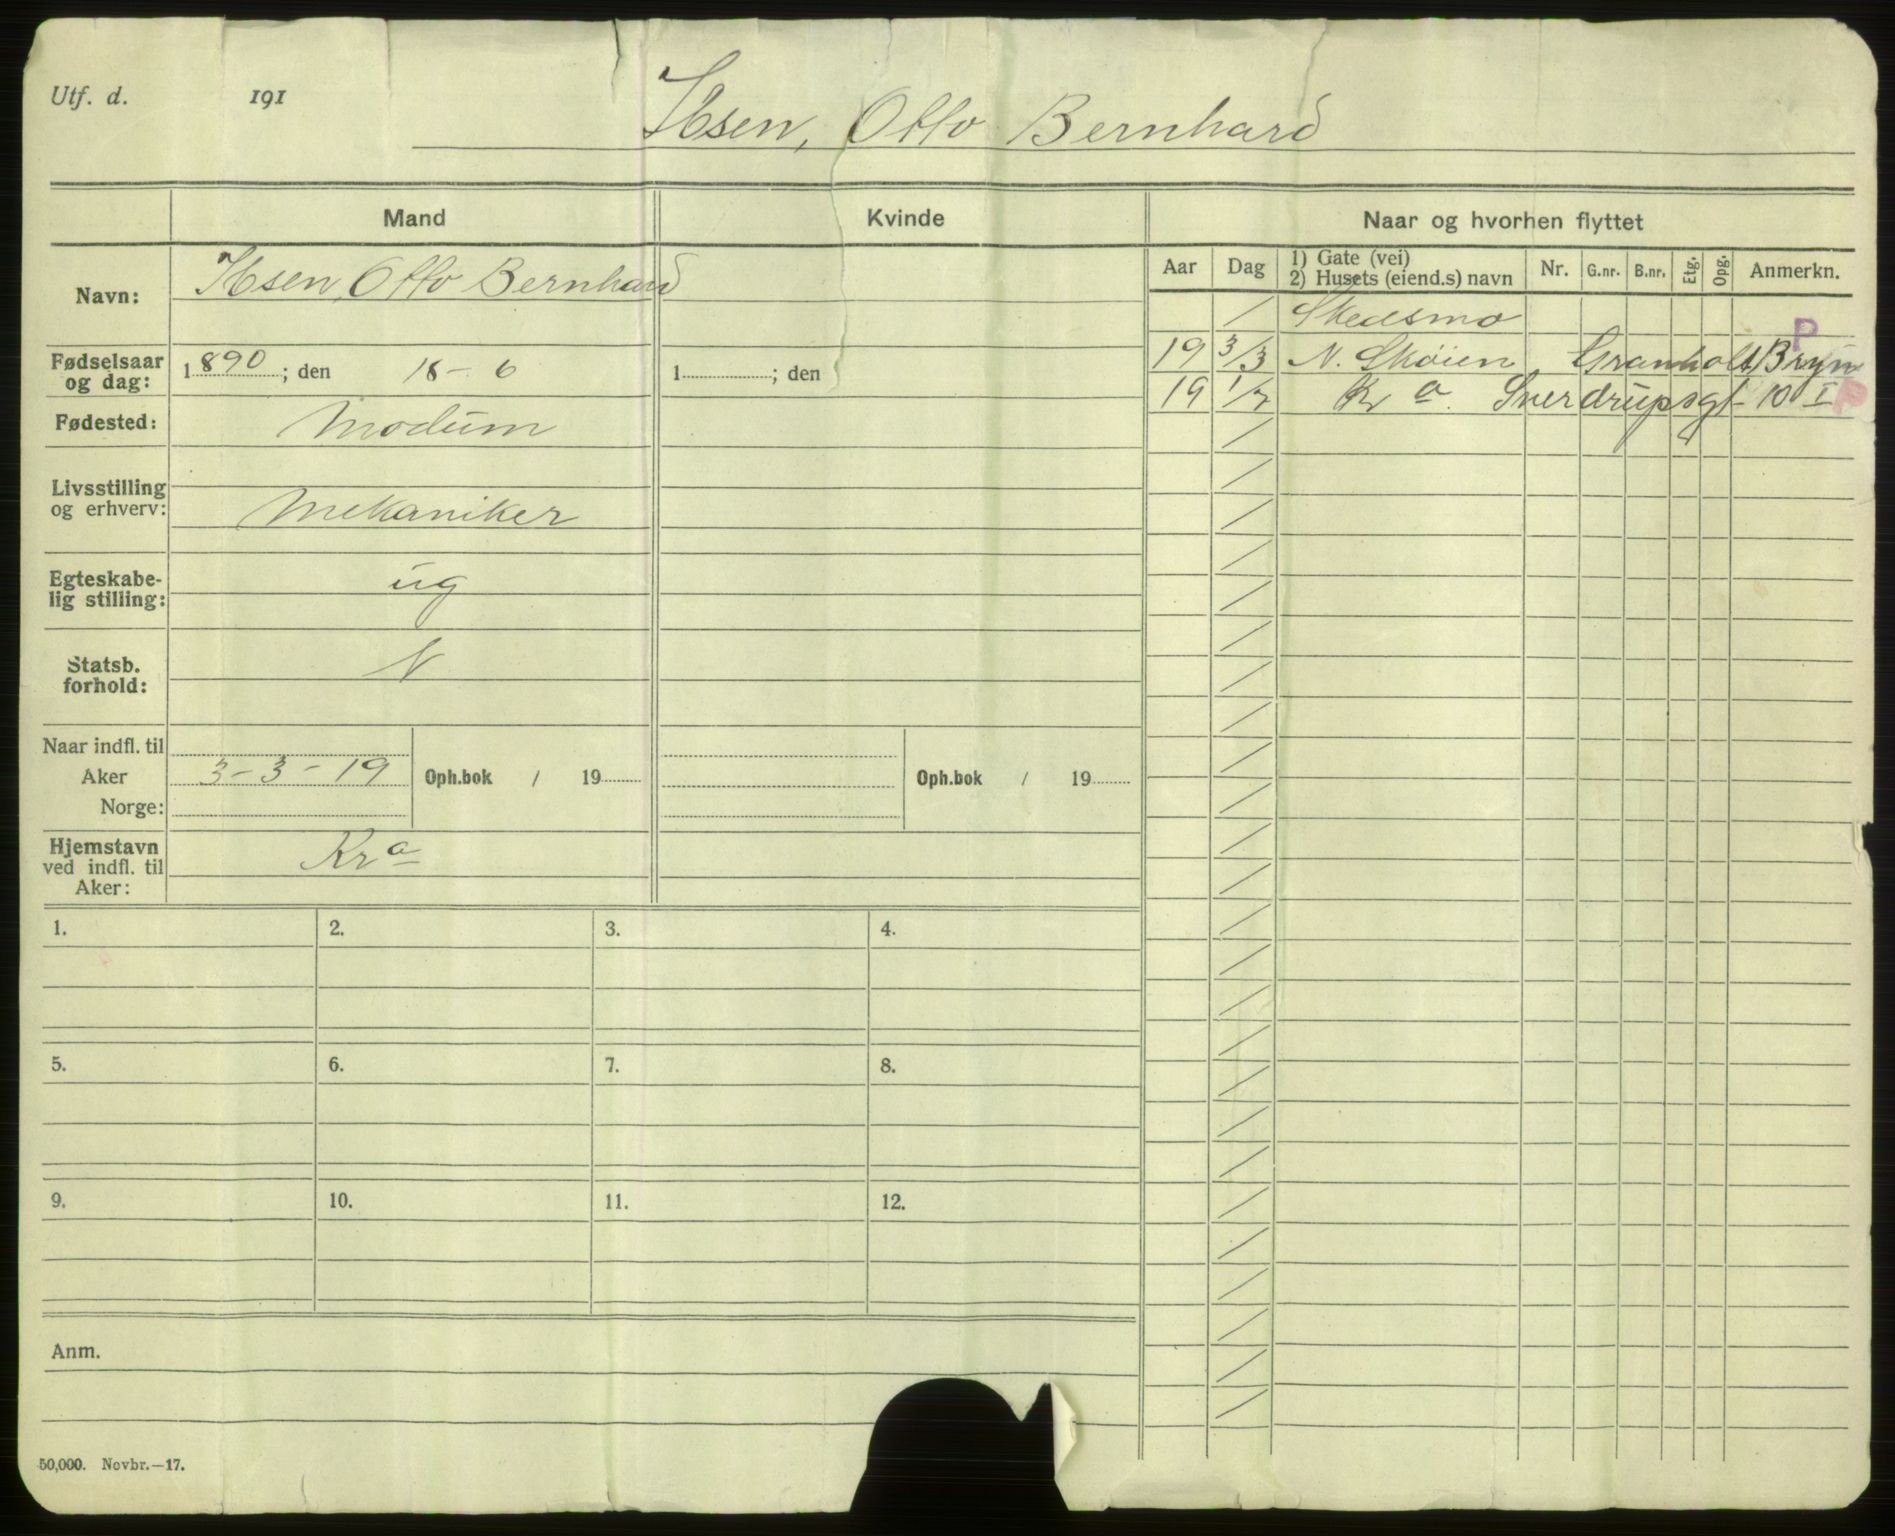 Utf. d. 191
Ibsen, Otto Bernhard
Mand Kvinde Naar og hvorhen flyttet
Navn: Ibsen, Otto Bernhard
Fødselsaar og dag: 1890; den 18-6 1 ; den
Fødested: Modum
Livsstilling og erhverv: Mekaniker
Egteskabe-
lig stilling: ug
Statsb. forhold: N
Naar indfl. til
Aker 3-3-19 Oph.bok / 19 Oph.bok / 19
Norge:
Hjemstavn
ved indfl. til
Aker: Kra
1. 2. 3. 4.
5. 6. 7. 8.
9. 10. 11. 12.
Anm.
50,000. Novbr.—17.
Aar Dag 1) Gate (vei) 2) Husets (eiend.s) navn Nr. G.nr. B.nr. Etg. Opg. Anmerkn.
/ Skedsmo
P
19 3/3 N. Skøien Granholt, Bryn
19 1/7 Kra. Sverdrupsgt 10 I P